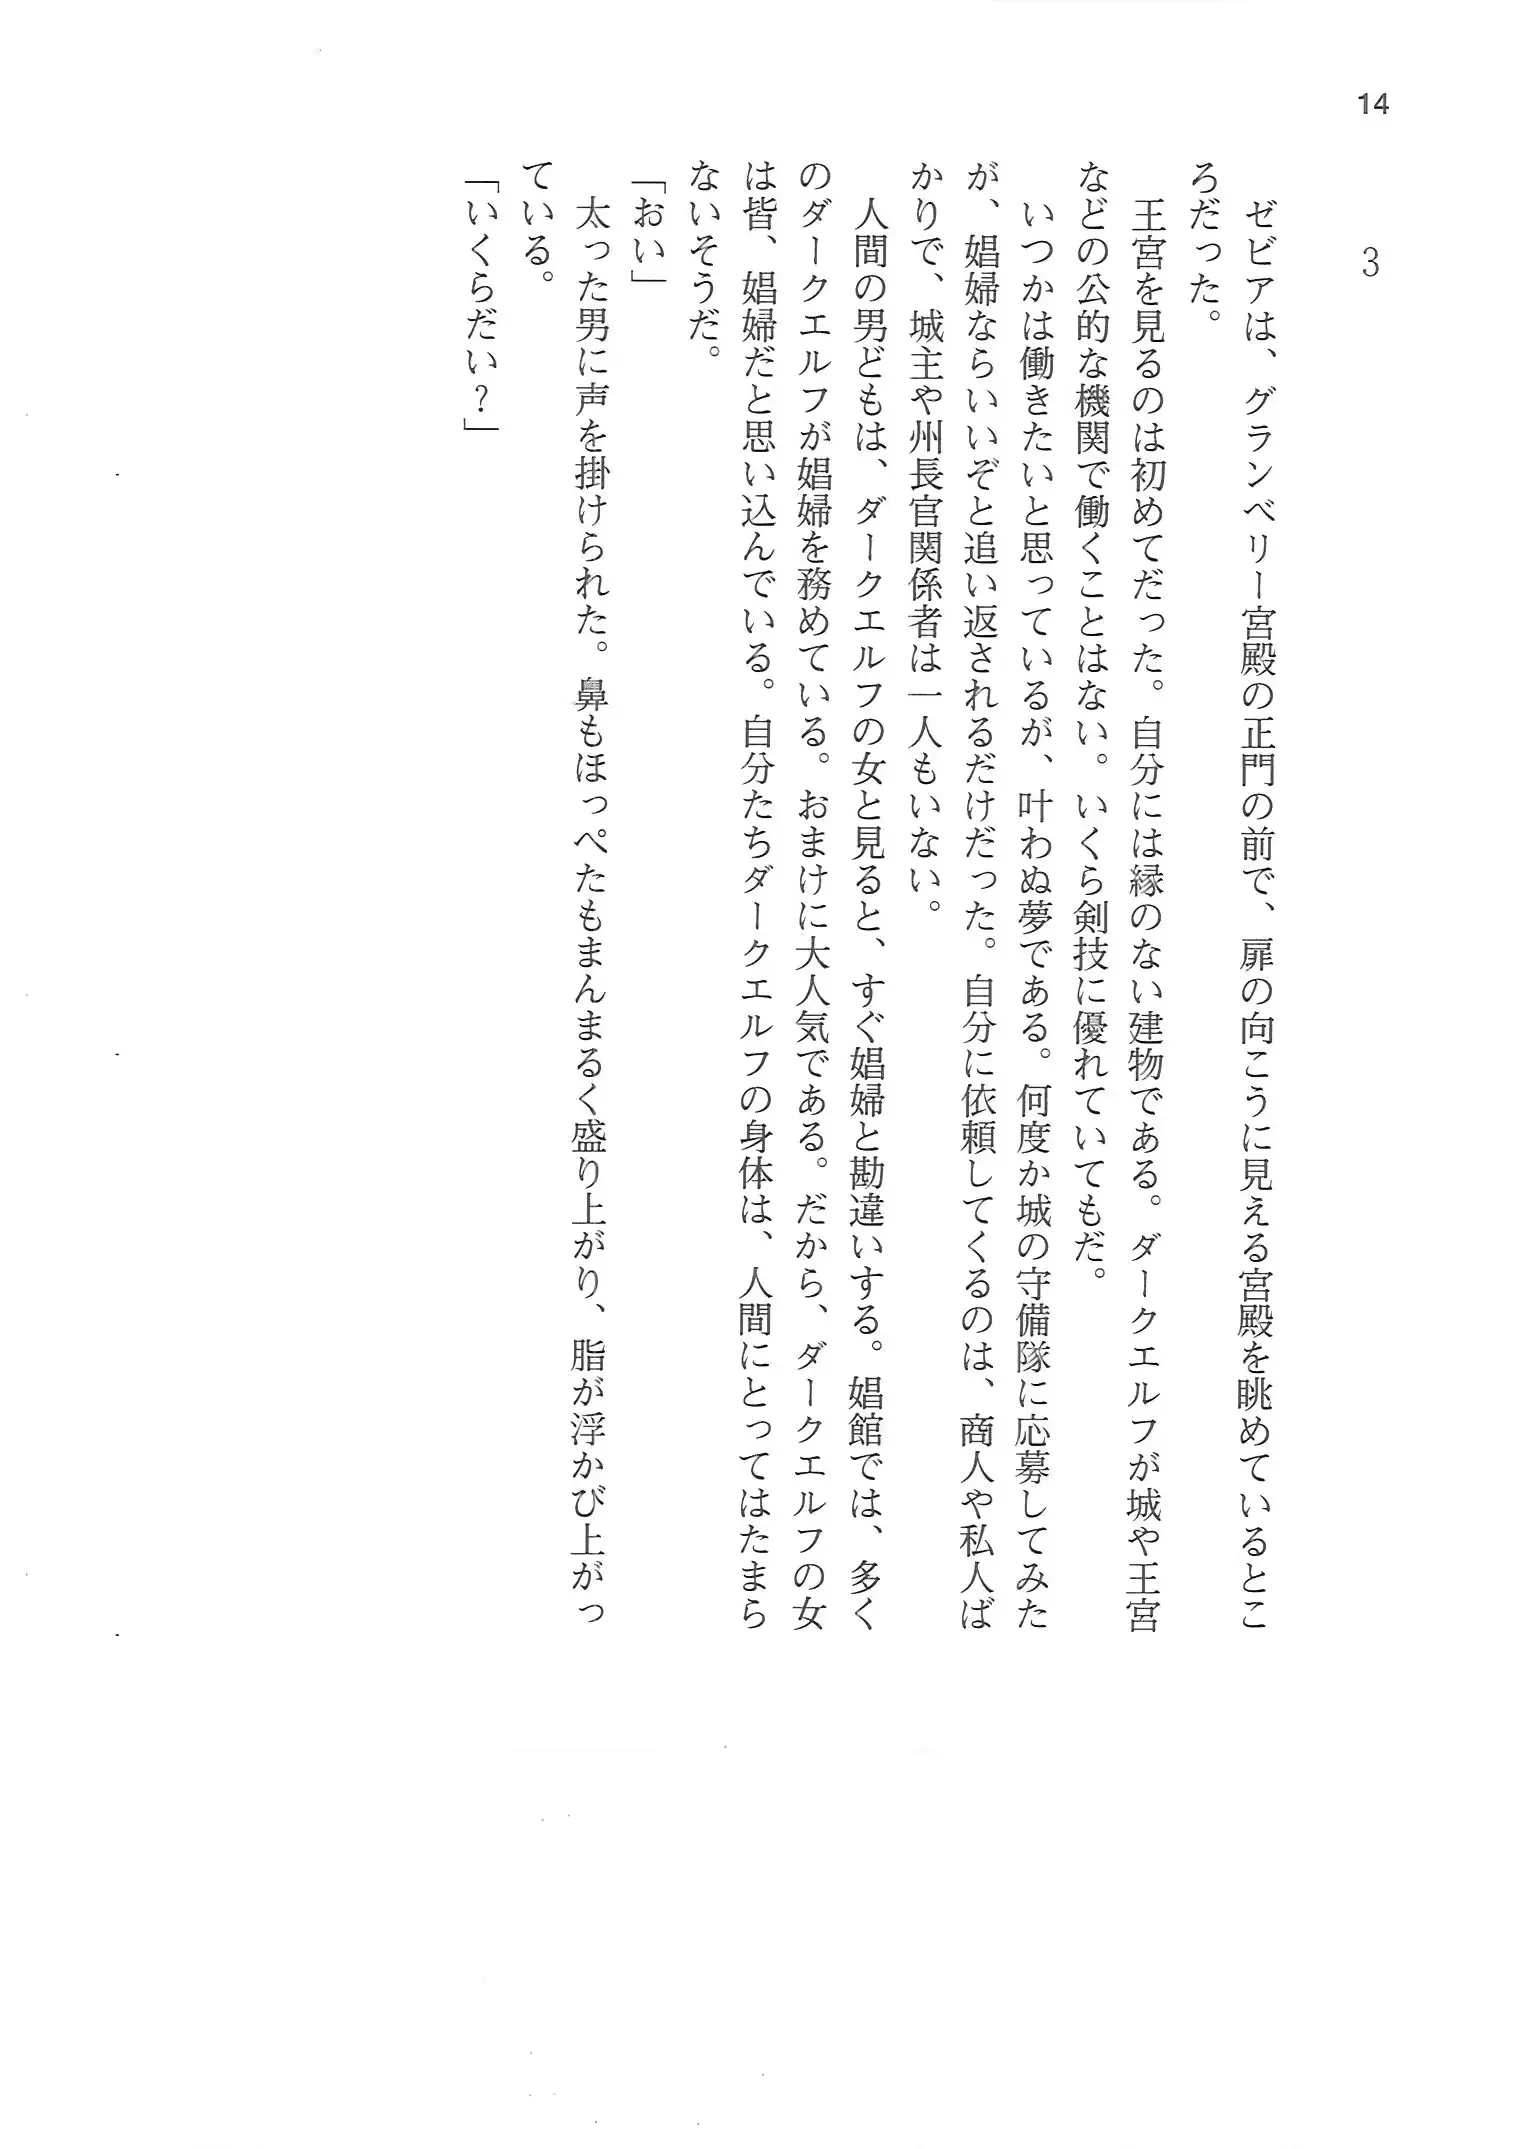 14
3
　ゼビアは、グランベリー宮殿の正門の前で、扉の向こうに見える宮殿を眺めているとこ
ろだった。
　王宮を見るのは初めてだった。自分には縁のない建物である。ダークエルフが城や王宮
などの公的な機関で働くことはない。いくら剣技に優れていてもだ。
　いつかは働きたいと思っているが、叶わぬ夢である。何度か城の守備隊に応募してみた
が、娼婦ならいいぞと追い返されるだけだった。自分に依頼してくるのは、商人や私人ば
かりで、城主や州長官関係者は一人もいない。
　人間の男どもは、ダークエルフの女と見ると、すぐ娼婦と勘違いする。娼館では、多く
のダークエルフが娼婦を務めている。おまけに大人気である。だから、ダークエルフの女
は皆、娼婦だと思い込んでいる。自分たちダークエルフの身体は、人間にとってはたまら
ないそうだ。
「おい」
　太った男に声を掛けられた。鼻もほっぺたもまんまるく盛り上がり、脂が浮かび上がっ
ている。
「いくらだい？」